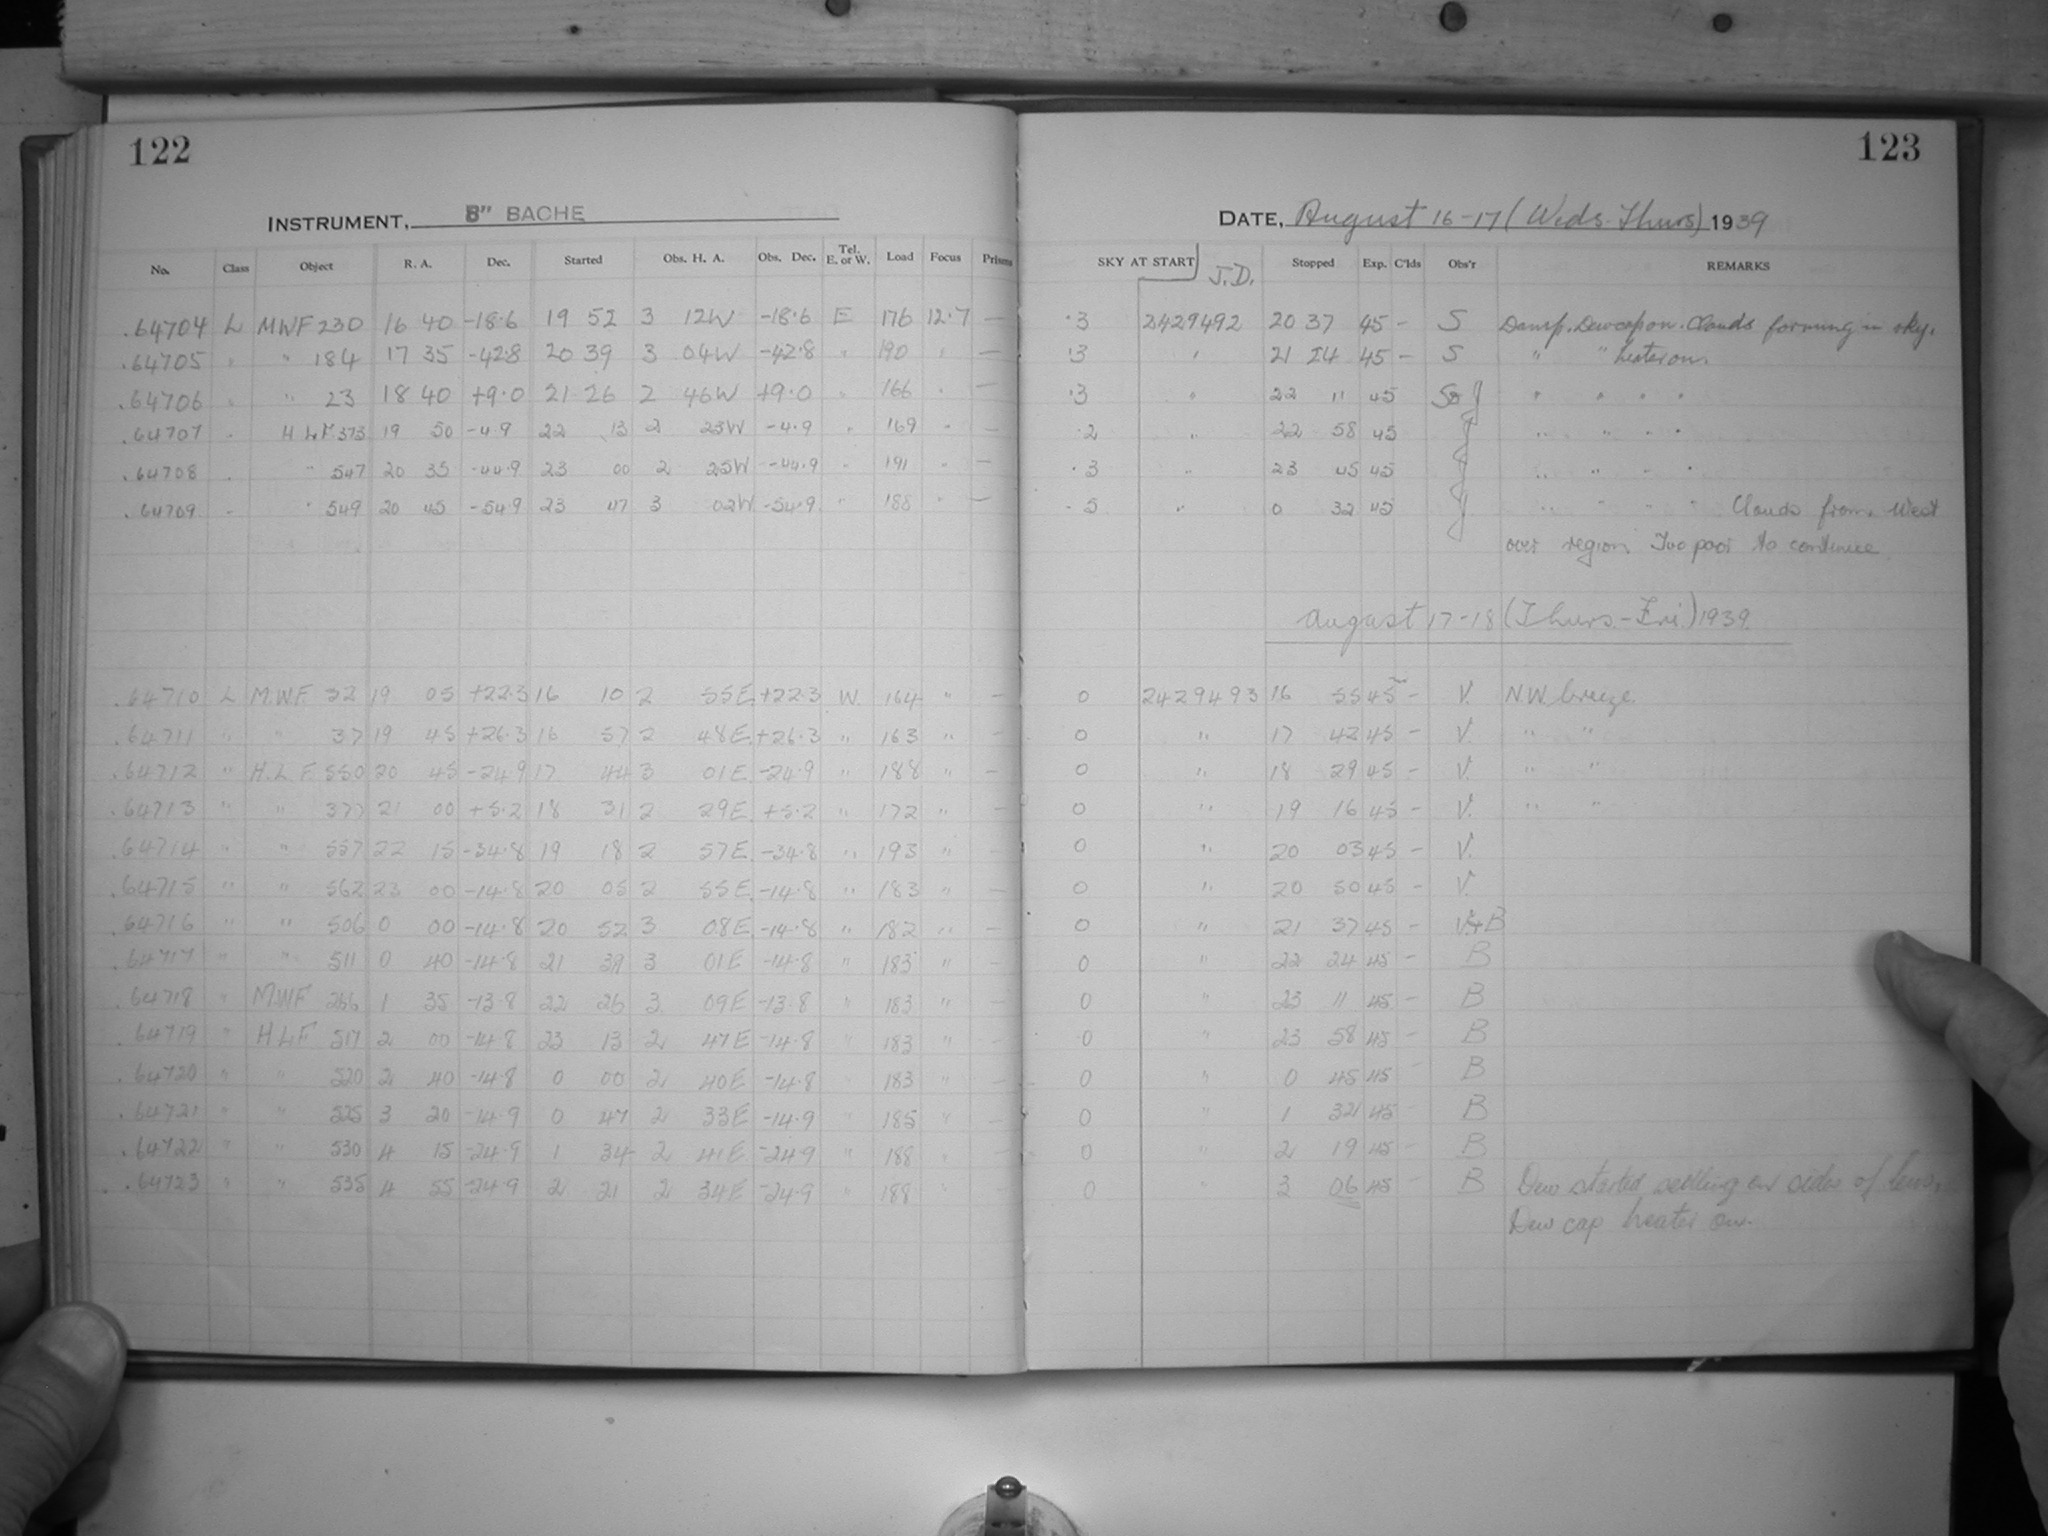 122
INSTRUMENT, 8" BACHE
No. Class Object R. A. Dec. Started Obs. H. A. Obs. Dec. Tel. E. or W. Load Focus Prisms
.64704 L MWF 230 16 40 -18.6 19 52 3 12W -18.6 E 176 12.7 —
.64705 " " 184 17 35 -42.8 20 39 3 04W -42.8 " 190 " —
.64706 " " 23 18 40 +9.0 21 26 2 46W +9.0 " 166 " —
.64707 " HLF 373 19 50 -4.9 22 13 2 23W -4.9 " 169 " —
.64708 " " 547 20 35 -44.9 23 00 2 25W -44.9 " 191 " —
.64709 " " 549 20 45 -54.9 23 47 3 02W -54.9 " 188 " —
.64710 L M.W.F. 32 19 05 +22.3 16 10 2 55E +22.3 W. 164 " —
.64711 " " 37 19 45 +26.3 16 57 2 48E +26.3 " 163 " —
.64712 " H.L.F. 550 20 45 -24.9 17 44 3 01E -24.9 " 188 " —
.64713 " " 377 21 00 +5.2 18 31 2 29E +5.2 " 172 " —
.64714 " " 557 22 15 -34.8 19 18 2 57E -34.8 " 193 " —
.64715 " " 562 23 00 -14.8 20 05 2 55E -14.8 " 183 " —
.64716 " " 506 0 00 -14.8 20 52 3 08E -14.8 " 182 " —
.64717 " " 511 0 40 -14.8 21 39 3 01E -14.8 " 183 " —
.64718 " MWF 266 1 35 -13.8 22 26 3 09E -13.8 " 183 " —
.64719 " HLF 517 2 00 -14.8 23 13 2 47E -14.8 " 183 " —
.64720 " " 520 2 40 -14.8 0 00 2 40E -14.8 " 183 " —
.64721 " " 525 3 20 -14.9 0 47 2 33E -14.9 " 185 " —
.64722 " " 530 4 15 -24.9 1 34 2 41E -24.9 " 188 " —
.64723 " " 535 4 55 -24.9 2 21 2 34E -24.9 " 188 " —
123
DATE, August 16-17 (Weds-Thurs) 1939
SKY AT START J.D. Stopped Exp. C'lds Obs'r REMARKS
.3 2429492 20 37 45 - S Damp. Dewcap on. Clouds forming in sky.
.3 " 21 24 45 - S " " heater on.
.3 " 22 11 45 S&J " " " "
.2 " 22 58 45 J " " " "
.3 " 23 45 45 J " " " "
.5 " 0 32 45 J " " " " Clouds from West
over region. Too poor to continue
August 17-18 (Thurs.-Fri.) 1939.
0 2429493 16 55 45 - V. N.W. breeze.
0 " 17 42 45 - V. " "
0 " 18 29 45 - V. " "
0 " 19 16 45 - V. " "
0 " 20 03 45 - V.
0 " 20 50 45 - V.
0 " 21 37 45 - V+B
0 " 22 24 45 - B
0 " 23 11 45 - B
0 " 23 58 45 - B
0 " 0 45 45 B
0 " 1 32 45 - B
0 " 2 19 45 - B
0 " 3 06 45 - B Dew started settling on sides of lens.
Dew cap heater on.